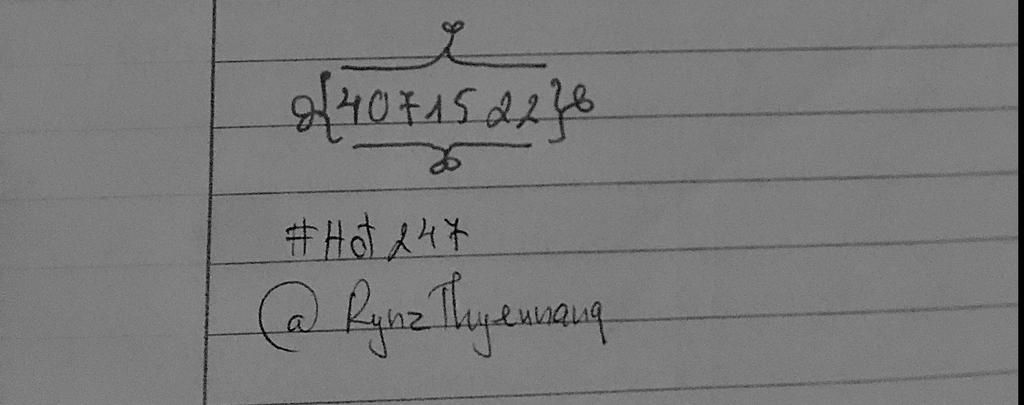 {4071522}
#Hot 247
@ RynzThyeunang